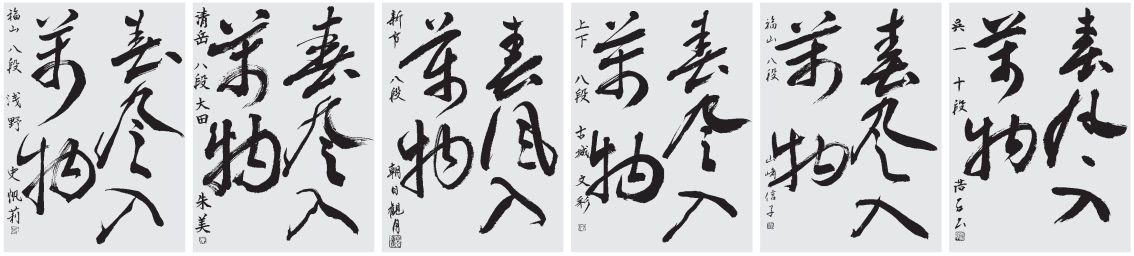 春風入
萬物
福山 八段 浅野 史帆莉
春風入
萬物
清岳 八段 大田 朱美
春風入
萬物
新市 八段 朝日観月
春風入
萬物
上下 八段 古城 文彩
春風入
萬物
福山 八段 山崎信子
春風入
萬物
呉一 十段